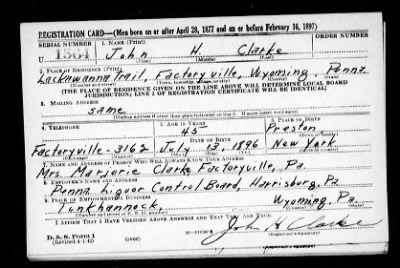 REGISTRATION CARD—(Men born on or after April 28, 1877 and on or before February 16, 1897)
SERIAL NUMBER 1. NAME (Print) ORDER NUMBER
U 1564 John H. Clarke
(First) (Middle) (Last)
2. PLACE OF RESIDENCE (Print)
Lackawanna Trail, Factoryville, Wyoming, Penna
(Number and street) (Town, township, village, or city) (County) (State)
[THE PLACE OF RESIDENCE GIVEN ON THE LINE ABOVE WILL DETERMINE LOCAL BOARD
JURISDICTION; LINE 2 OF REGISTRATION CERTIFICATE WILL BE IDENTICAL]
3. MAILING ADDRESS
same
(Mailing address if other than place indicated on line 2. If same insert word same)
4. TELEPHONE 5. AGE IN YEARS 6. PLACE OF BIRTH
45 Preston
DATE OF BIRTH
Factoryville-3162 July 13, 1896 New York
7. NAME AND ADDRESS OF PERSON WHO WILL ALWAYS KNOW YOUR ADDRESS
Mrs. Marjorie Clarke Factoryville, Pa.
8. EMPLOYER'S NAME AND ADDRESS
Penna Liquor Control Board, Harrisburg, Pa
9. PLACE OF EMPLOYMENT OR BUSINESS
Tunkhannock, Wyoming, Pa.
(Number and street or R. F. D. number) (Town) (County) (State)
I AFFIRM THAT I HAVE VERIFIED ABOVE ANSWERS AND THAT THEY ARE TRUE.
John H Clarke
D. S. S. Form 1
(Revised 4-1-42) (over) (Registrant's signature)